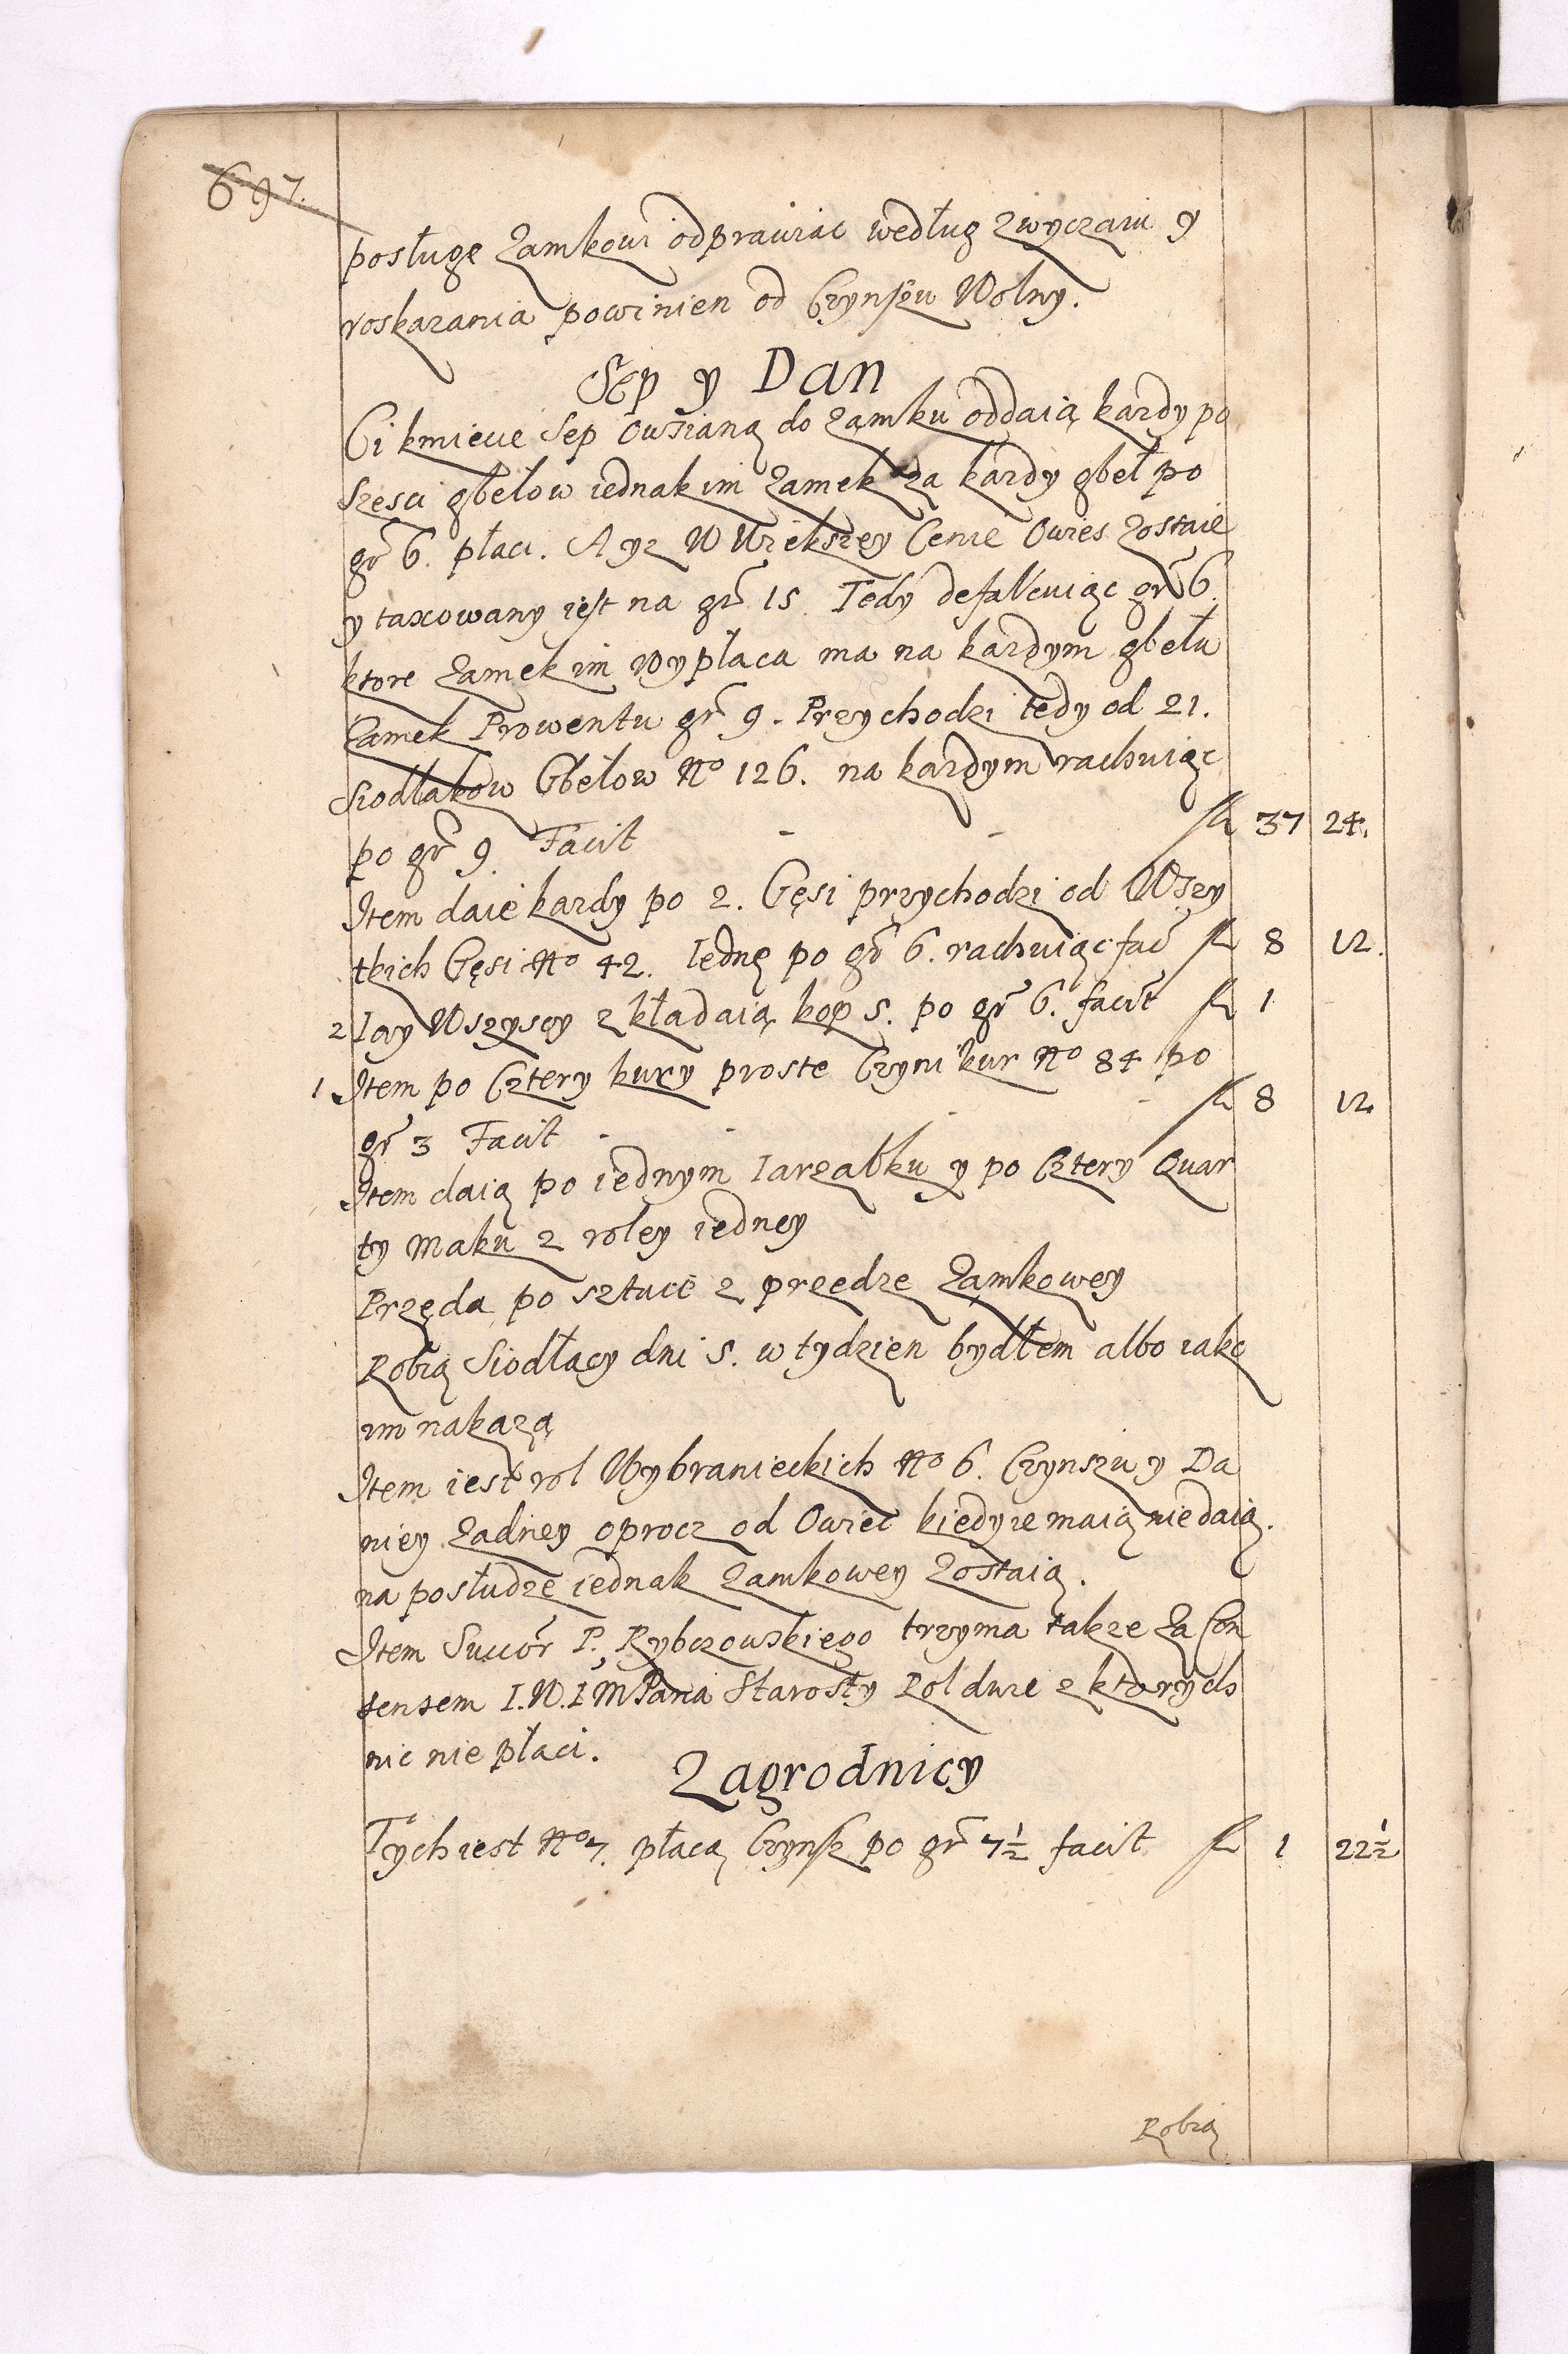 697.
posługę Zamkowi odprawiac według zwyczaiu y
roskazania powinien od Czynszu Wolny.
Sep y Dan
Ci kmiecie Sep Owsianą do Zamku oddaią kazdy po
szesci gbełow iednak im Zamek za kazdy gbeł po
gr 6. płaci. A yz W Wiekszey Cenie Owies Zostaie
y taxowany iest na gr 15 Tedy defalcuiąc gr 6.
ktore Zamek im Wypłaca ma na kazdym gbełu
Zamek Prowentu gr 9. Przychodzi tedy od 21.
Siodłakow Gbełow No 126. na kazdym rachuiąc
po gr 9. Facit - - fl 37 24.
Item daie kazdy po 2. Gęsi przychodzi od Wszy
tkich Gęsi No 42. Iednę po gr 6. rachuiąc fac fl 8 12.
2 Iay Wszyscy zkładaią kop 5. po gr 6. facit fl 1 -
1 Item po Cztery kury proste Czyni kur No 84 po
gr 3 Facit - - - - fl 8 12
Item daią po iednym Iarząbku y po Cztery Quar
ty Maku z roley iedney
Przędą po sztuce z przedze Zamkowey
Robią Siodłacy dni 5. w tydzien bydłem albo iako
im nakazą
Item iest rol Wybranieckich No 6. Czynszu y Da
niey Zadney oprocz od Owiec kiedy ie maią nie daią.
na posłudze iednak Zamkowey Zostaią.
Item Succor P. Rybczowskiego trzyma takze Za Con
sensem I. W. I M Pana Starosty Rol dwie z ktorych
nic nie płaci.
Zagrodnicy
Tych iest No 7. płacą Czynsz po gr 7½ facit fl 1 22½
Robią